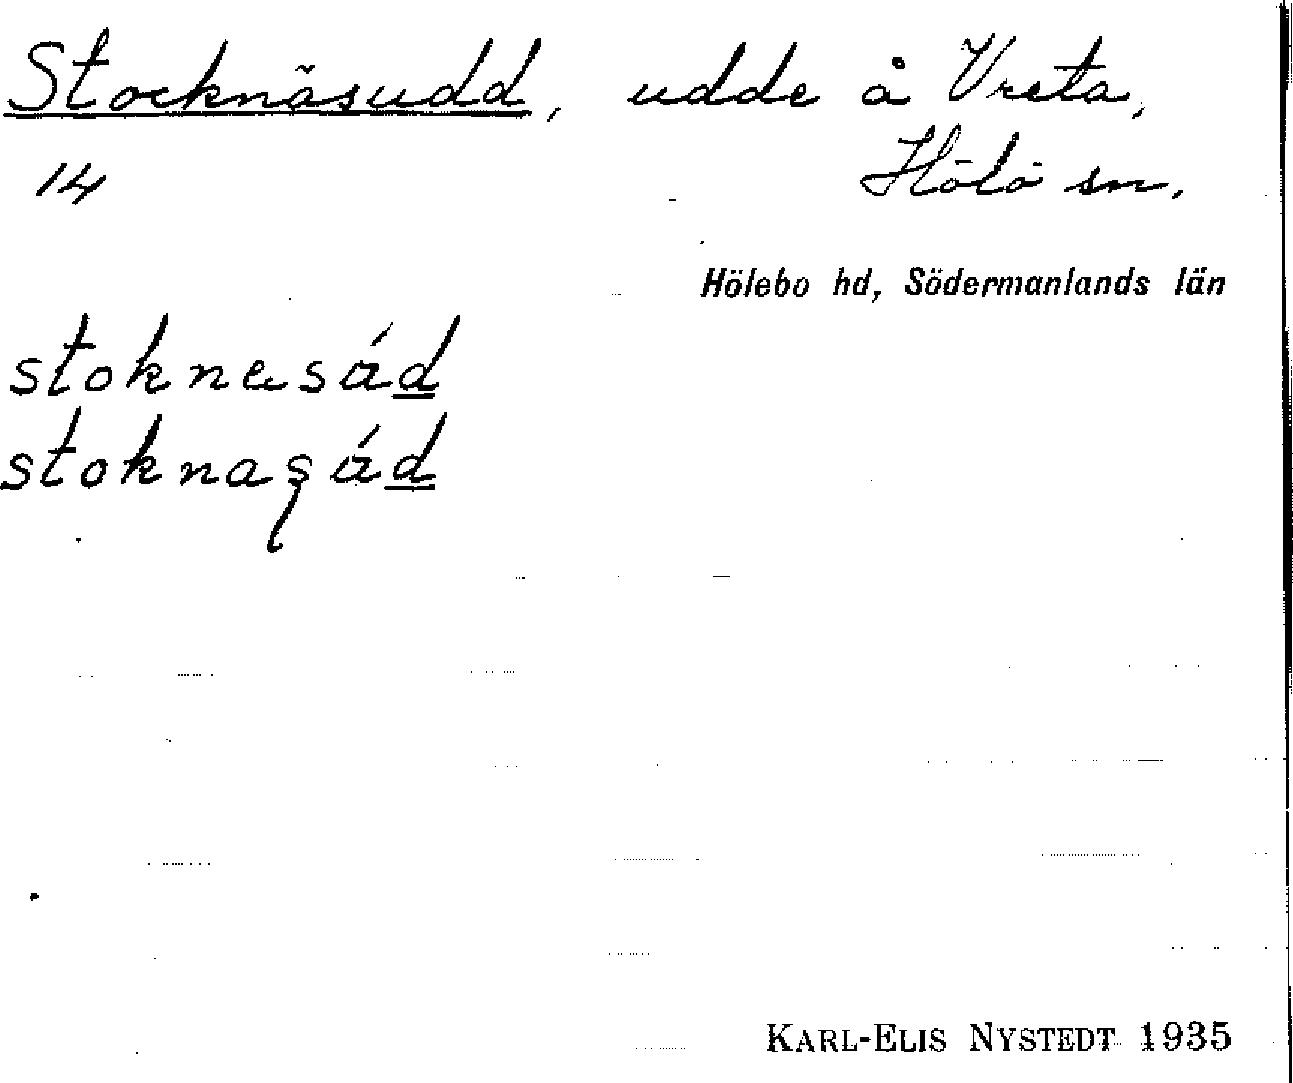 Stocknäsudd, udde å Vreta,
14 Hölö sn.
Hölebo hd, Södermanlands län
stoknesád
stoknasád
KARL-ELIS NYSTEDT 1935